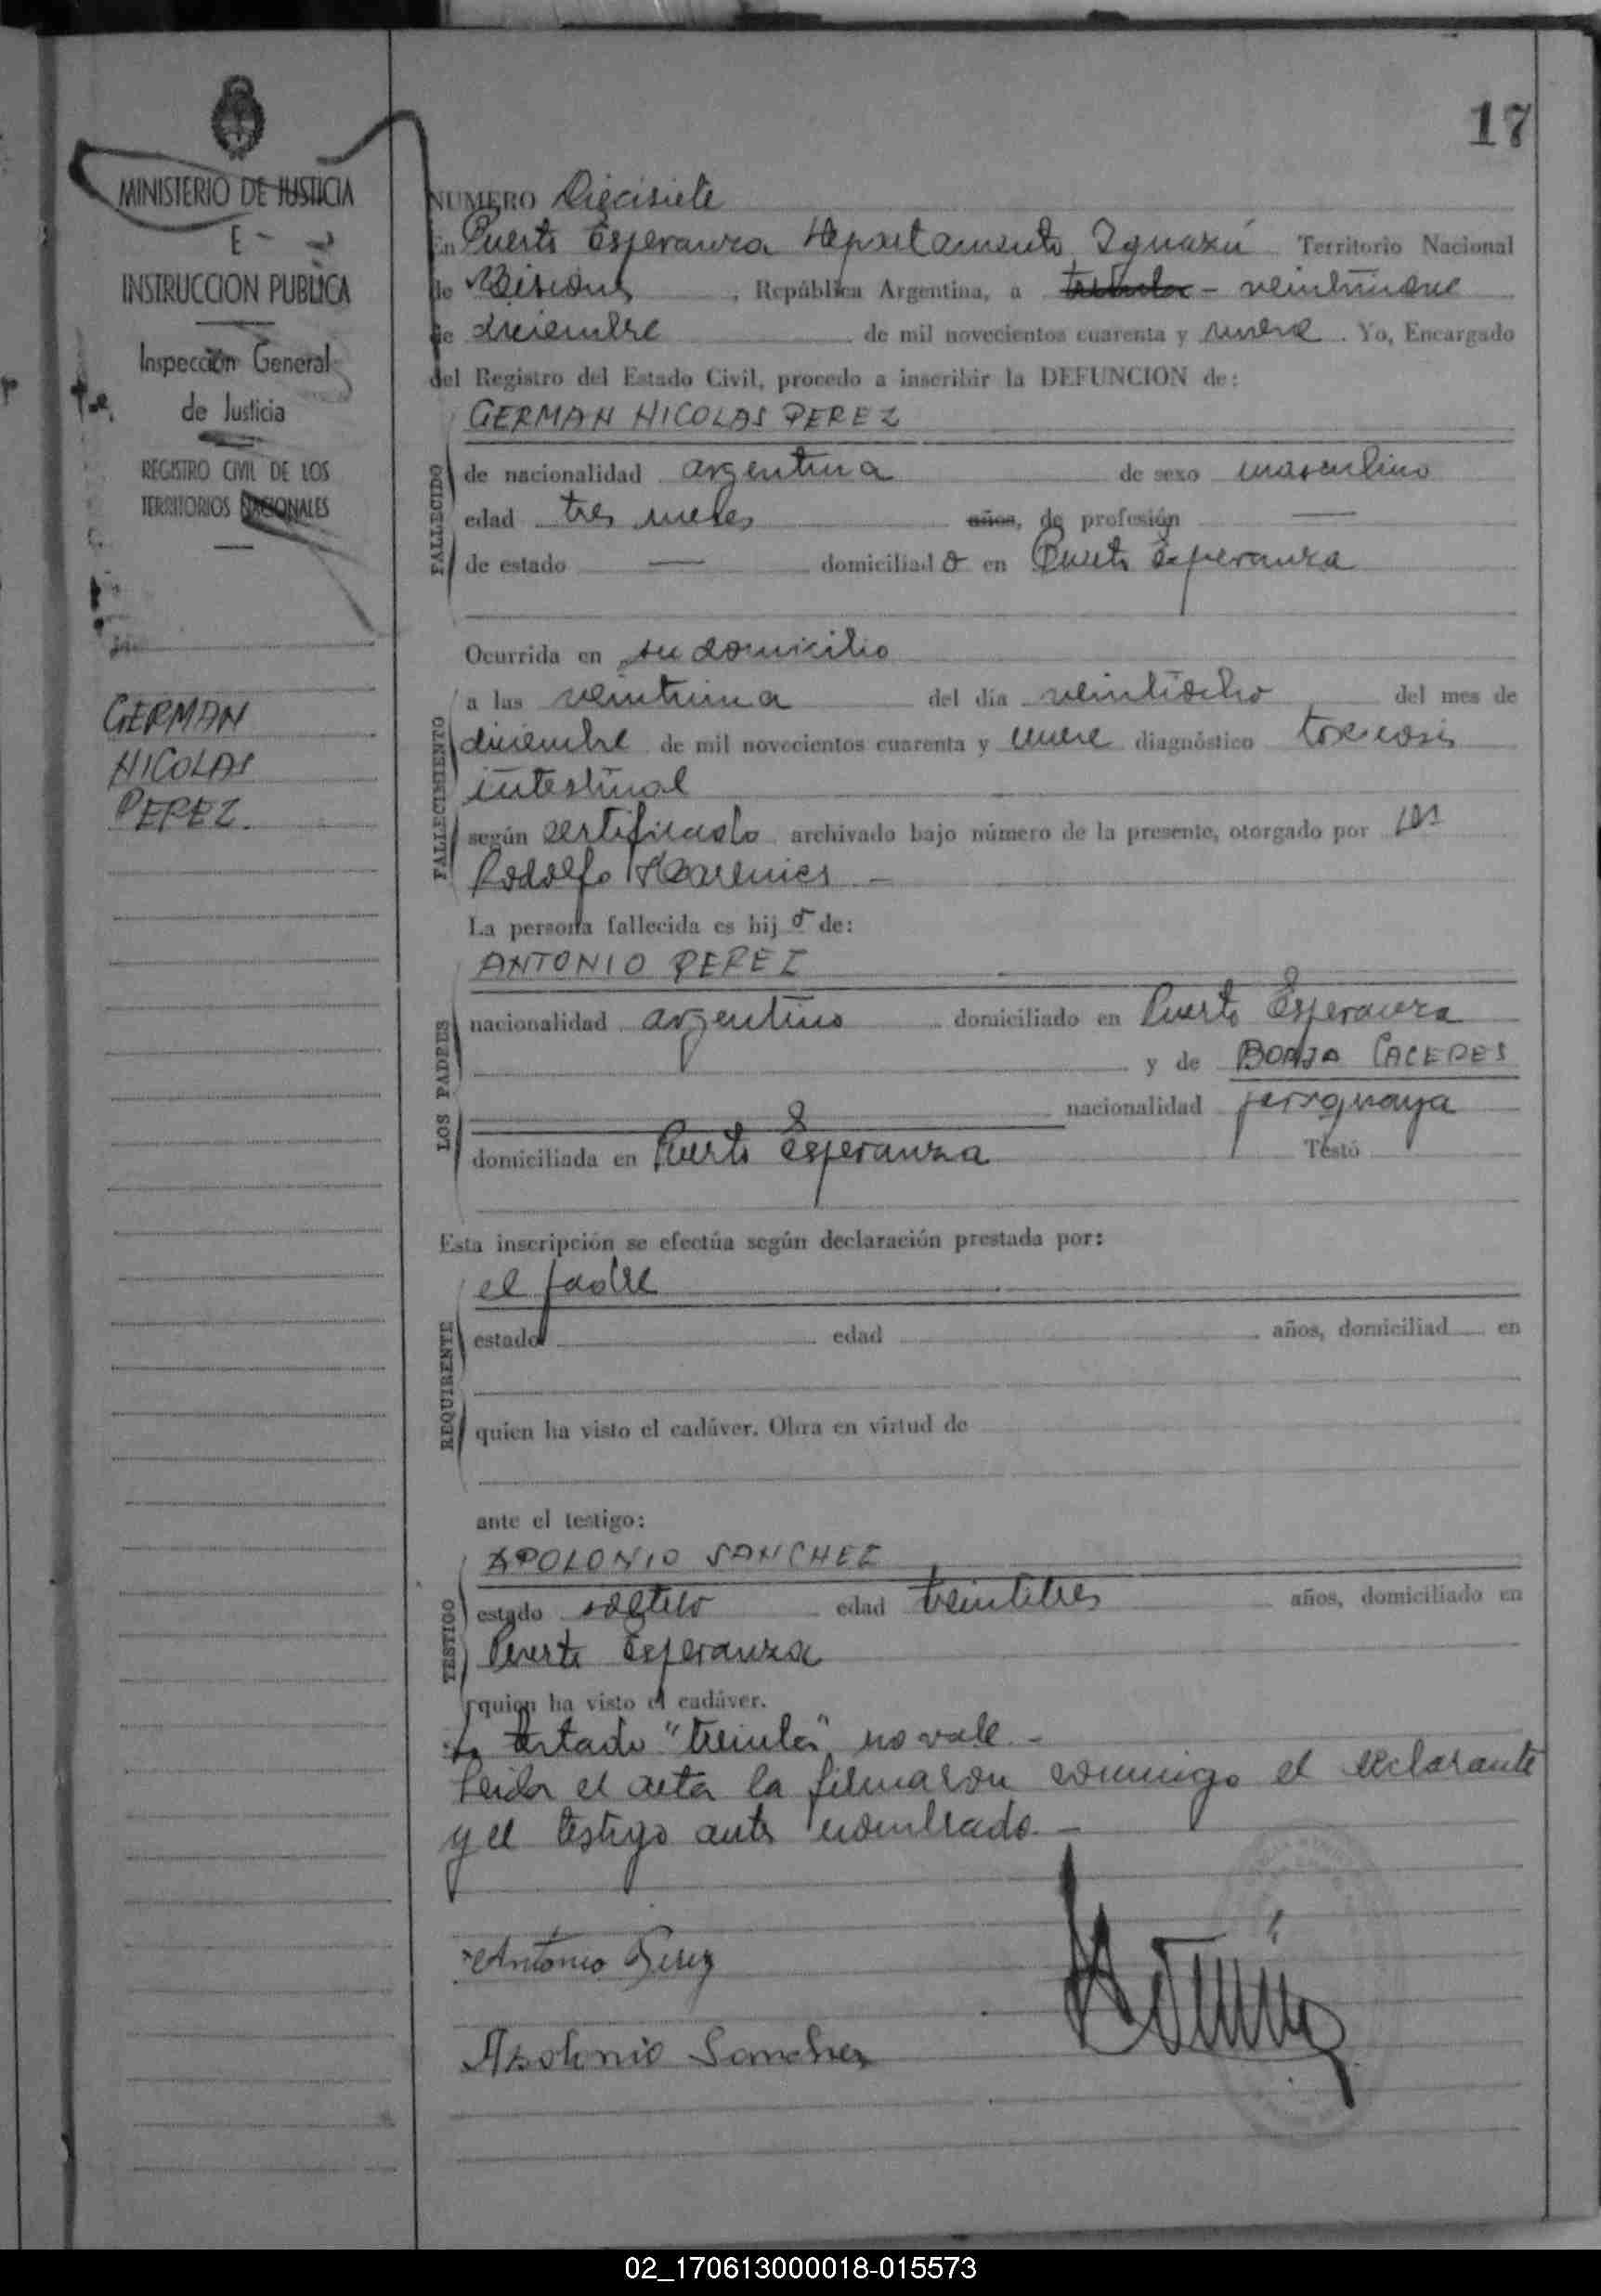 17
MINISTERIO DE JUSTICIA
E
INSTRUCCION PUBLICA
Inspección General
de Justicia
REGISTRO CIVIL DE LOS
TERRITORIOS NACIONALES
GERMAN
NICOLAS
PEREZ.
NUMERO Diecisiete
En Puerto Esperanza Departamento Iguazú Territorio Nacional
de Misiones, República Argentina, a treinta - veintinueve
de diciembre de mil novecientos cuarenta y nueve. Yo, Encargado
del Registro del Estado Civil, procedo a inscribir la DEFUNCION de:
GERMAN NICOLAS PEREZ
FALLECIDO
de nacionalidad argentina de sexo masculino
edad tres meses años, de profesión —
de estado — domiciliado en Puerto Esperanza
Ocurrida en su domicilio
FALLECIMIENTO
a las veintiuna del día veintiocho del mes de
diciembre de mil novecientos cuarenta y nueve diagnóstico toxicosis
intestinal
según certificado archivado bajo número de la presente, otorgado por
Rodolfo
La persona fallecida es hijo de:
ANTONIO PEREZ
LOS PADRES
nacionalidad argentino domiciliado en Puerto Esperanza
y de BORJA CACERES
nacionalidad paraguaya
domiciliada en Puerto Esperanza Testó
Esta inscripción se efectúa según declaración prestada por:
el padre
REQUIRENTE
estado edad años, domiciliad en
quien ha visto el cadáver. Obra en virtud de
ante el testigo:
APOLONIO SANCHEZ
TESTIGO
estado soltero edad veintitres años, domiciliado en
Puerto Esperanza
quien ha visto el cadáver.
Lo testado "treinta" no vale -
Leida el acta la firmaron conmigo el declarante
y el testigo antes nombrado. -
Antonio Perez
Apolonio Sanchez
02_170613000018-015573